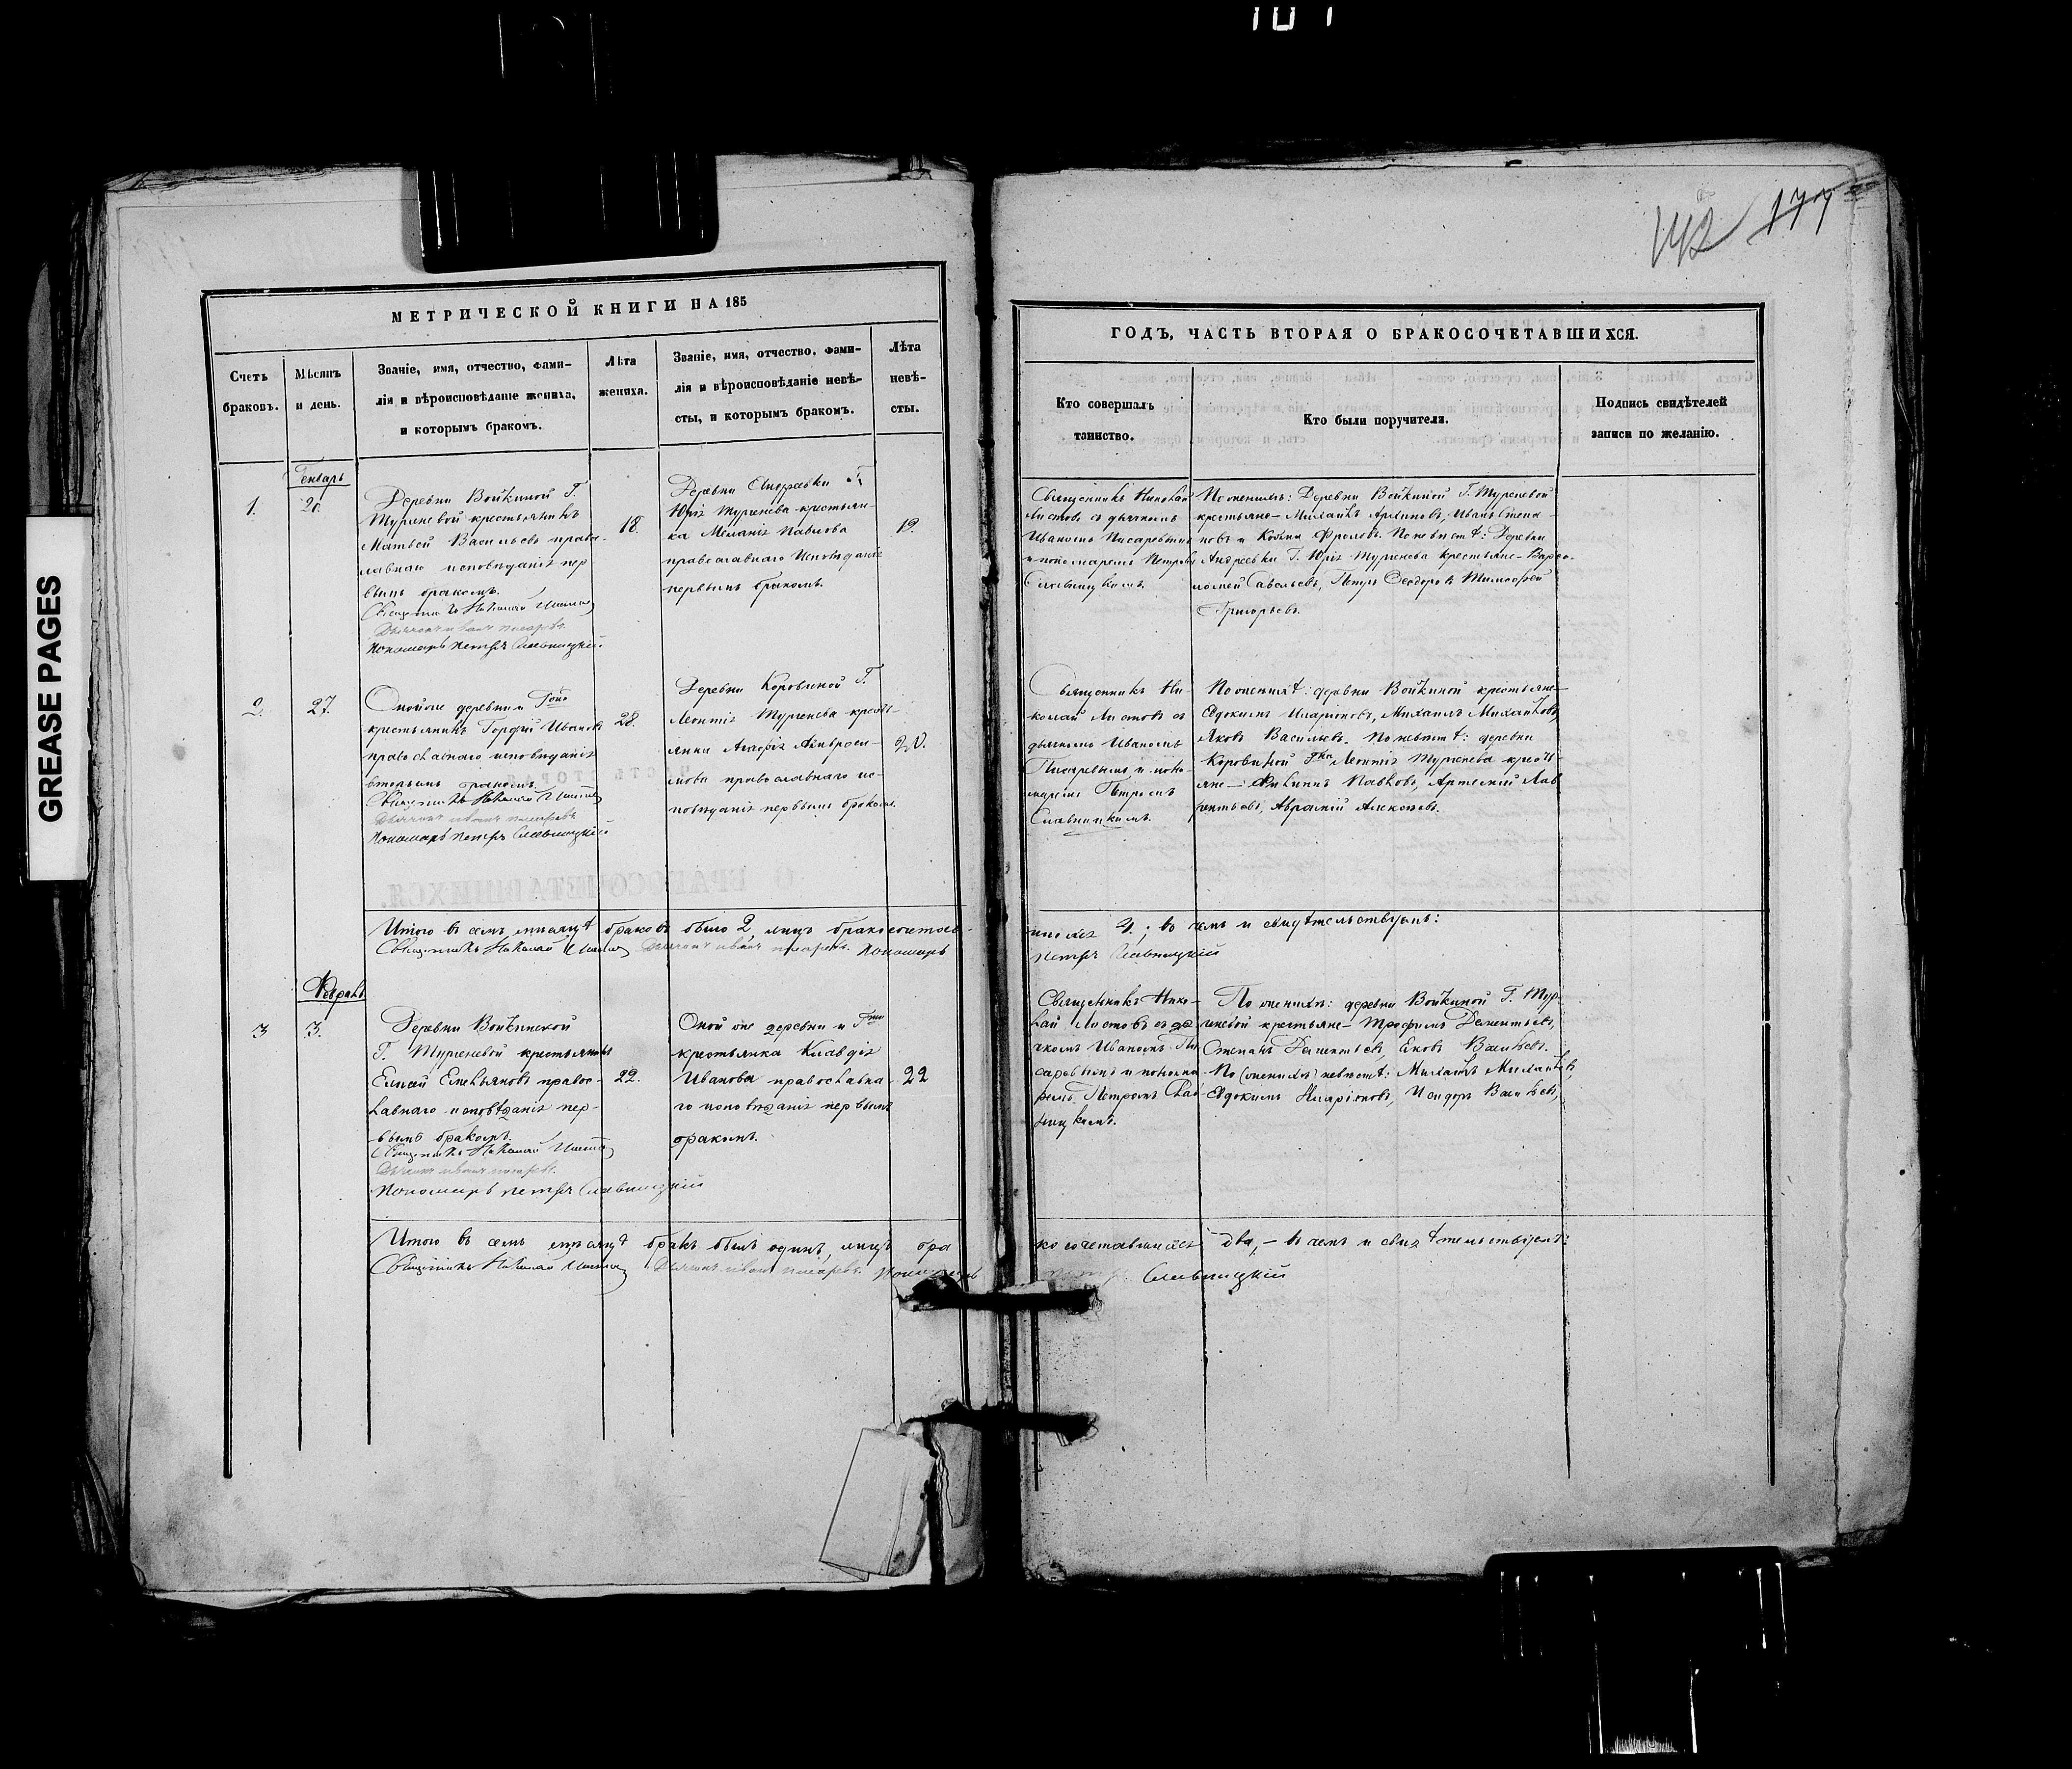 GREASE PAGES
142 177
МЕТРИЧЕСКОЙ КНИГИ НА 185
Счетъ
браковъ.
Мѣсяцъ
и день.
Званіе, имя, отчество, фами-
лія и вѣроисповѣданіе жениха,
и которымъ бракомъ.
Лѣта
жениха.
Званіе, имя, отчество, фами-
лія и вѣроисповѣданіе невѣ-
сты, и которымъ бракомъ.
Лѣта
невѣ-
сты.
ГОДЪ, ЧАСТЬ ВТОРАЯ О БРАКОСОЧЕТАВШИХСЯ.
Кто совершалъ
таинство.
Кто были поручители.
Подпись свидѣтелей
записи по желанію.
Генварь
1.
20.
Деревни Войкиной Г.
Тургеневой крестьянинъ
Матвей Васильевъ право-
славнаго исповѣданія пер
вымъ бракомъ.
Священникъ Николай
Дьячокъ Иванъ Писаревъ
Пономарь Петръ Славницкій
18.
Деревни Андреевки Г.
Юрія Тургенева крестьян-
ка Меланія Павлова
православнаго исповѣданія
первымъ бракомъ.
19.
Священникъ Николай
Листовъ съ дьячкомъ
Иваномъ Писаревымъ
и пономаремъ Петромъ
Славницкимъ.
По женихѣ: Деревни Войкиной Г. Тургеневой
крестьяне – Архиповъ, Иванъ Степа-
новъ и Козма Фроловъ. По невѣстѣ: Деревни
Андреевки Г. Юрія Тургенева крестьяне – Варѳо-
ломей Савельевъ, Петръ Ѳеодоровъ Тимофей
Григорьевъ.
2.
27.
Оной же деревни и Гжо
крестьянинъ Гордѣй Ивановъ
православнаго исповѣданія
вторымъ бракомъ.
Священникъ Николай
Дьячокъ Иванъ Писаревъ
Пономарь Петръ Славницкій
28.
Деревни Коровиной Г.
Леонтія Тургенева кресть-
янка Амвроси-
мова православнаго ис-
повѣданія первымъ бракомъ.
20.
Священникъ Ни-
колай Листовъ съ
дьячкомъ Иваномъ
Писаревымъ и поно-
маремъ Петромъ
Славницкимъ.
По женихѣ: деревни Войкиной крестьяне –
Евдокимъ Иларіоновъ, Михаилъ Михайловъ,
Яковъ Васильевъ. По невѣстѣ: деревни
Коровиной Гна Леонтія Тургенева кресть-
яне – Павловъ, Артемій Лав
рентьевъ, Алексѣевъ.
Итого въ семъ мѣсяцѣ браковъ было 2, лицъ бракосочетав-
шихся 4.; въ чемъ и свидѣтельствуемъ:
Священникъ Николай Дьячокъ Иванъ Писаревъ. Пономарь
Петръ Славницкій
Февраль
3
3.
Деревни Войкинской
Г. Тургеневой крестьянинъ
Елисей Емельяновъ право-
славнаго исповѣданія пер-
вымъ бракомъ.
Священникъ Николай
Дьячокъ Иванъ Писаревъ.
Пономарь Петръ Славницкій
22.
Оной же деревни и Гжи
крестьянка Клавдія
Иванова православна-
го исповѣданія первымъ
бракомъ.
22
Священникъ Нико-
лай Листовъ съ дья
чкомъ Иваномъ Пи
саревымъ и понома
ремъ Петромъ Слав
ницкимъ.
По женихѣ: деревни Войкиной Г. Тур-
геневой крестьяне – Трофимъ Дементьевъ,
Степанъ Дементьевъ, Яковъ Васильевъ.
По невѣстѣ: Михаилъ Михайловъ,
Евдокимъ Иларіоновъ, Исидоръ Васильевъ,
Итого въ семъ мѣсяцѣ бракъ былъ одинъ, лицъ бра
косочетавшихся два, – въ чемъ и свидѣтельствуемъ:
Священникъ Николай Дьячокъ Иванъ Писаревъ. Пономарь
Славницкій